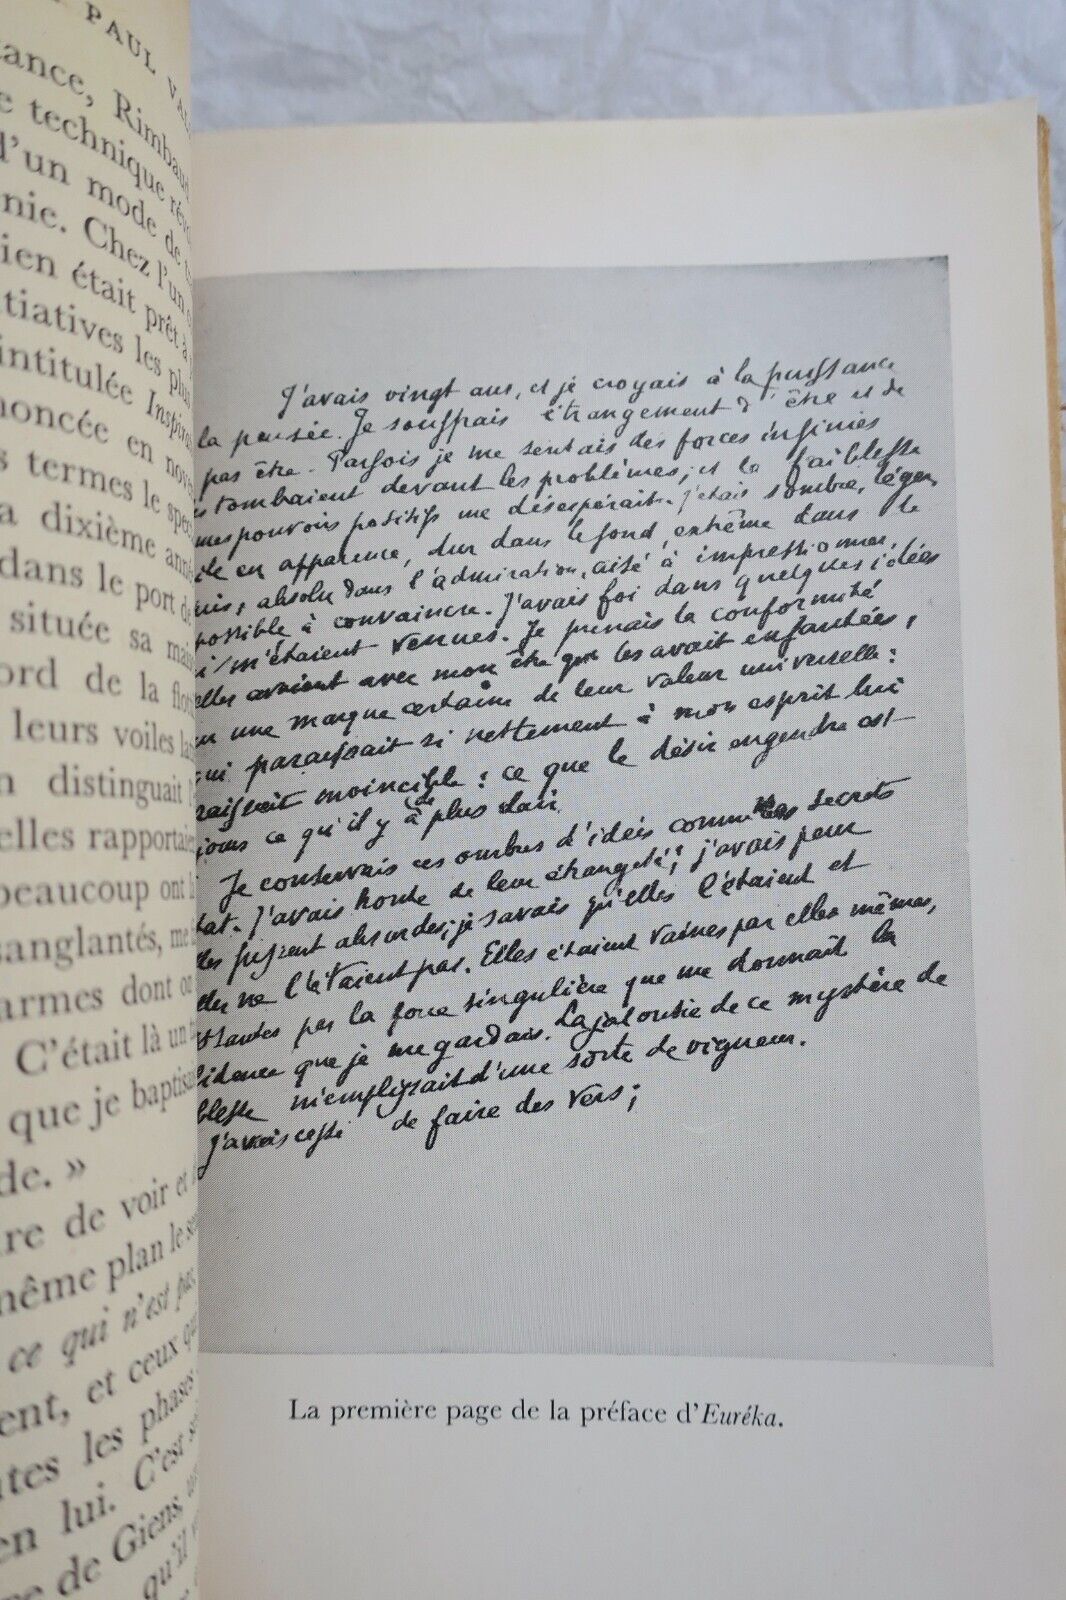 PAUL VAL
tance, Rimbaud
e technique révo
d'un mode de
nie. Chez l'un
ien était prêt à
itiatives les plus
intitulée Inspira
noncée en nove
s termes le spec
a dixième anné
dans le port de
située sa mais
ord de la flot
leurs voiles lat
n distinguait l
elles rapportaien
beaucoup ont
sanglantés, me
armes dont on
C'était là un
que je baptisai
de. »
re de voir et
même plan le
ce qui n'est pas,
ent, et ceux qu
tes les phases
en lui. C'est
de Giens,
qu'il
J'avais vingt ans, et je croyais à la puissance
la pensée. Je souffrais étrangement d'être et de
pas être. Parfois je me sentais des forces infinies
s tombaient devant les problèmes; et la faiblesse
mes pouvoirs positifs me désespérait. J'étais sombre, léger,
ile en apparence, dur dans le fond, extrême dans le
ris, absolu dans l'admiration, aisé à impressionner,
possible à convaincre. J'avais foi dans quelques idées
i m'étaient venues. Je prenais la conformité
elles avaient avec mon être qui les avait enfantées,
ur une marque certaine de leur valeur universelle:
qui paraissait si nettement à mon esprit lui
raissait invincible; ce que le désir engendre est
jours ce qu'il y a de plus clair.
Je conservais ces ombres d'idées comme mes secrets
tat. J'avais honte de leur étrangeté; j'avais peur
lles fussent absurdes; je savais qu'elles l'étaient et
elles ne l'étaient pas. Elles étaient vaines par elles mêmes,
ssantes par la force singulière que me donnait la
fidence que je me gardais. La jalousie de ce mystère de
blesse m'emplissait d'une sorte de vigueur.
J'avais cessé de faire des vers;
La première page de la préface d'Euréka.